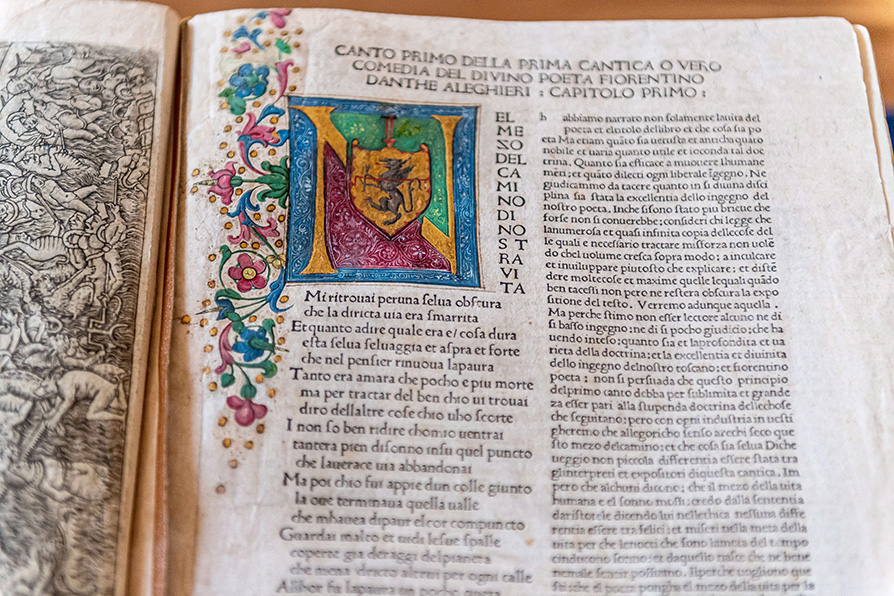 CANTO PRIMO DELLA PRIMA CANTICA O VERO
COMEDIA DEL DIVINO POETA FIORENTINO
DANTHE ALEGHIERI : CAPITOLO PRIMO :
N
EL
ME
ZO
DEL
CA
MI
NO
DI
NO
ST
RA
VI
TA
Mi ritrouai peruna ſelua obſcura
che la diricta uia era ſmarrita
Et quanto adire quale era e/ coſa dura
eſta ſelua ſeluaggia et aſpra et forte
che nel penſier rinuoua lapaura
Tanto era amara che pocho e piu morte
ma per tractar del ben chio ui trouai
diro dellaltre coſe chio uho ſcorte
I non ſo ben ridire chomio uentrai
tantera pien diſonno inſu quel puncto
che lauerace uia abbandonai
Ma poi chio fui appie dun colle giunto
la oue terminaua quella ualle
che mhauea dipaur elcor compuncto
Guardai inalto et uidi leſue ſpalle
coperte gia deraggi delpianeta
che mena dricto altrui per ogni calle
Allhor fu lapaura un pocho queta
h abbiamo narrato non ſolamente lauita del
poeta et eltitolo dellibro et che coſa ſia po
eta Ma etiam quāto ſia uetuſta et anticha quāto
nobile et uaria quanto utile et ioconda tal doc
trina. Quanto ſia efficace a muouere lhumane
mēti; et quāto dilecti ogni liberale īgegno. Ne
giudicammo da tacere quanto in ſi diuina diſci
plina ſia ſtata la excellentia dello ingegno del
noſtro poeta. Inche ſiſono ſtato piu brieue che
forſe non ſi conuerebbe; conſideri chi legge che
lanumeroſa et quaſi infinita copia dellecoſe del
le quali e neceſſario tractare miſforza non uolē
do chel uolume creſca ſopra modo; a inculcare
et inuiluppare piutoſto che explicare; et diſtē
dere moltecoſe et maxime quelle lequali quādo
ben taceſſi non pero ne reſtera obſcura la expo
ſitione del teſto. Verremo adunque aquella.
Ma perche ſtimo non eſſer lectore alcuno ne di
ſi baſſo ingegno; ne di ſi pocho giudicio; che ha
uendo inteſo; quanto ſia et laprofondita et ua
rieta della doctrina; et la excellentia et diuinita
dello ingegno delnoſtro toſcano; et fiorentino
poeta; non ſi perſuada che queſto principio
delprimo canto debba per ſublimita et grande
za eſſer pari alla ſtupenda doctrina dellechoſe
che ſeguitano; pero con ogni induſtria inueſti
gheremo che allegoricho ſenſo arechi ſeco que
ſto mezo delcamino; et che coſa ſia ſelua Diche
ueggio non piccola differentia eſſere ſtata tra
glinterpreti et expoſitori diqueſta cantica. Im
pero che alchuni dicono; che il mezo della uita
humana e el ſonno moſſi; credo dalla ſententia
dariſtotele dicendo lui nellethica neſſuna diffe
rentia eſſere tra felici; et miſeri nella meta della
uita per che lenocti che ſono lameta del tempo
cinducono ſonno; et daquello naſce che ne bene
nemale ſentir poſſiamo. Ilperche uogliono que
ſti; che el poeta pongha el mezo della uita per la